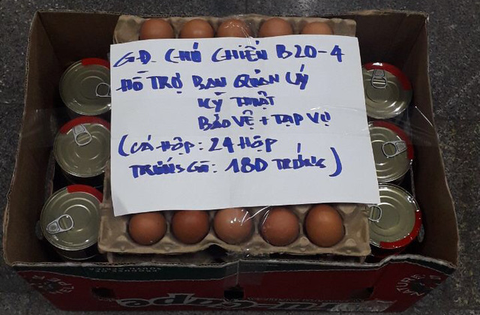 G.Đ. CHÚ CHIẾN B20-4
HỖ TRỢ BAN QUẢN LÝ
KỸ THUẬT
BẢO VỆ + TẠP VỤ
(CÁ HỘP: 24 HỘP
TRỨNG GÀ: 180 TRỨNG)